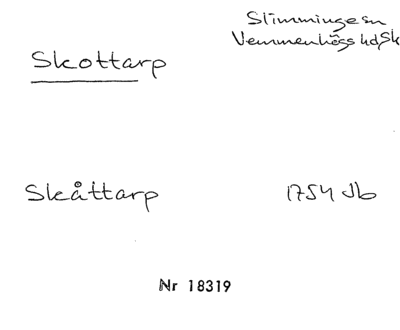 Skottarp
Slimminge sn
Vemmenhögs hd, Sk
Skåttarp
1754 Jb
Nr 18319